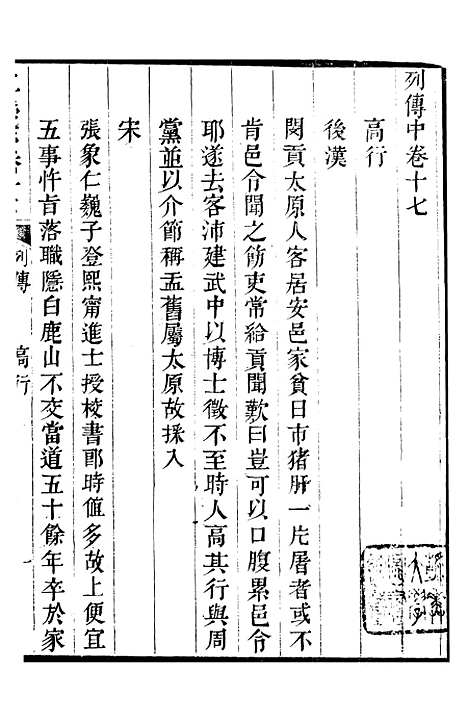 列傳中卷十七
高行
後漢
閔貢太原人客居安邑家貧日市猪肝一片屠者或不
肯邑令聞之飭吏常給貢聞歎曰豈可以口腹累邑令
耶遂去客沛建武中以博士徵不至時人高其行與周
黨並以介節稱盂舊屬太原故採入
宋
張象仁巍子登熙甯進士授校書郎時値多故上便宜
五事忤旨落職隱白鹿山不交當道五十餘年卒於家
列傳 高行 一